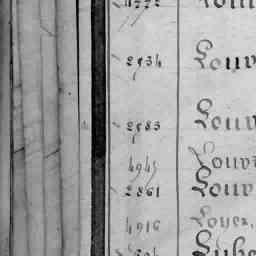 2934 Louv
2983 Louv
4945 Louv
2861 Louv
4916 Loyer,
Lube